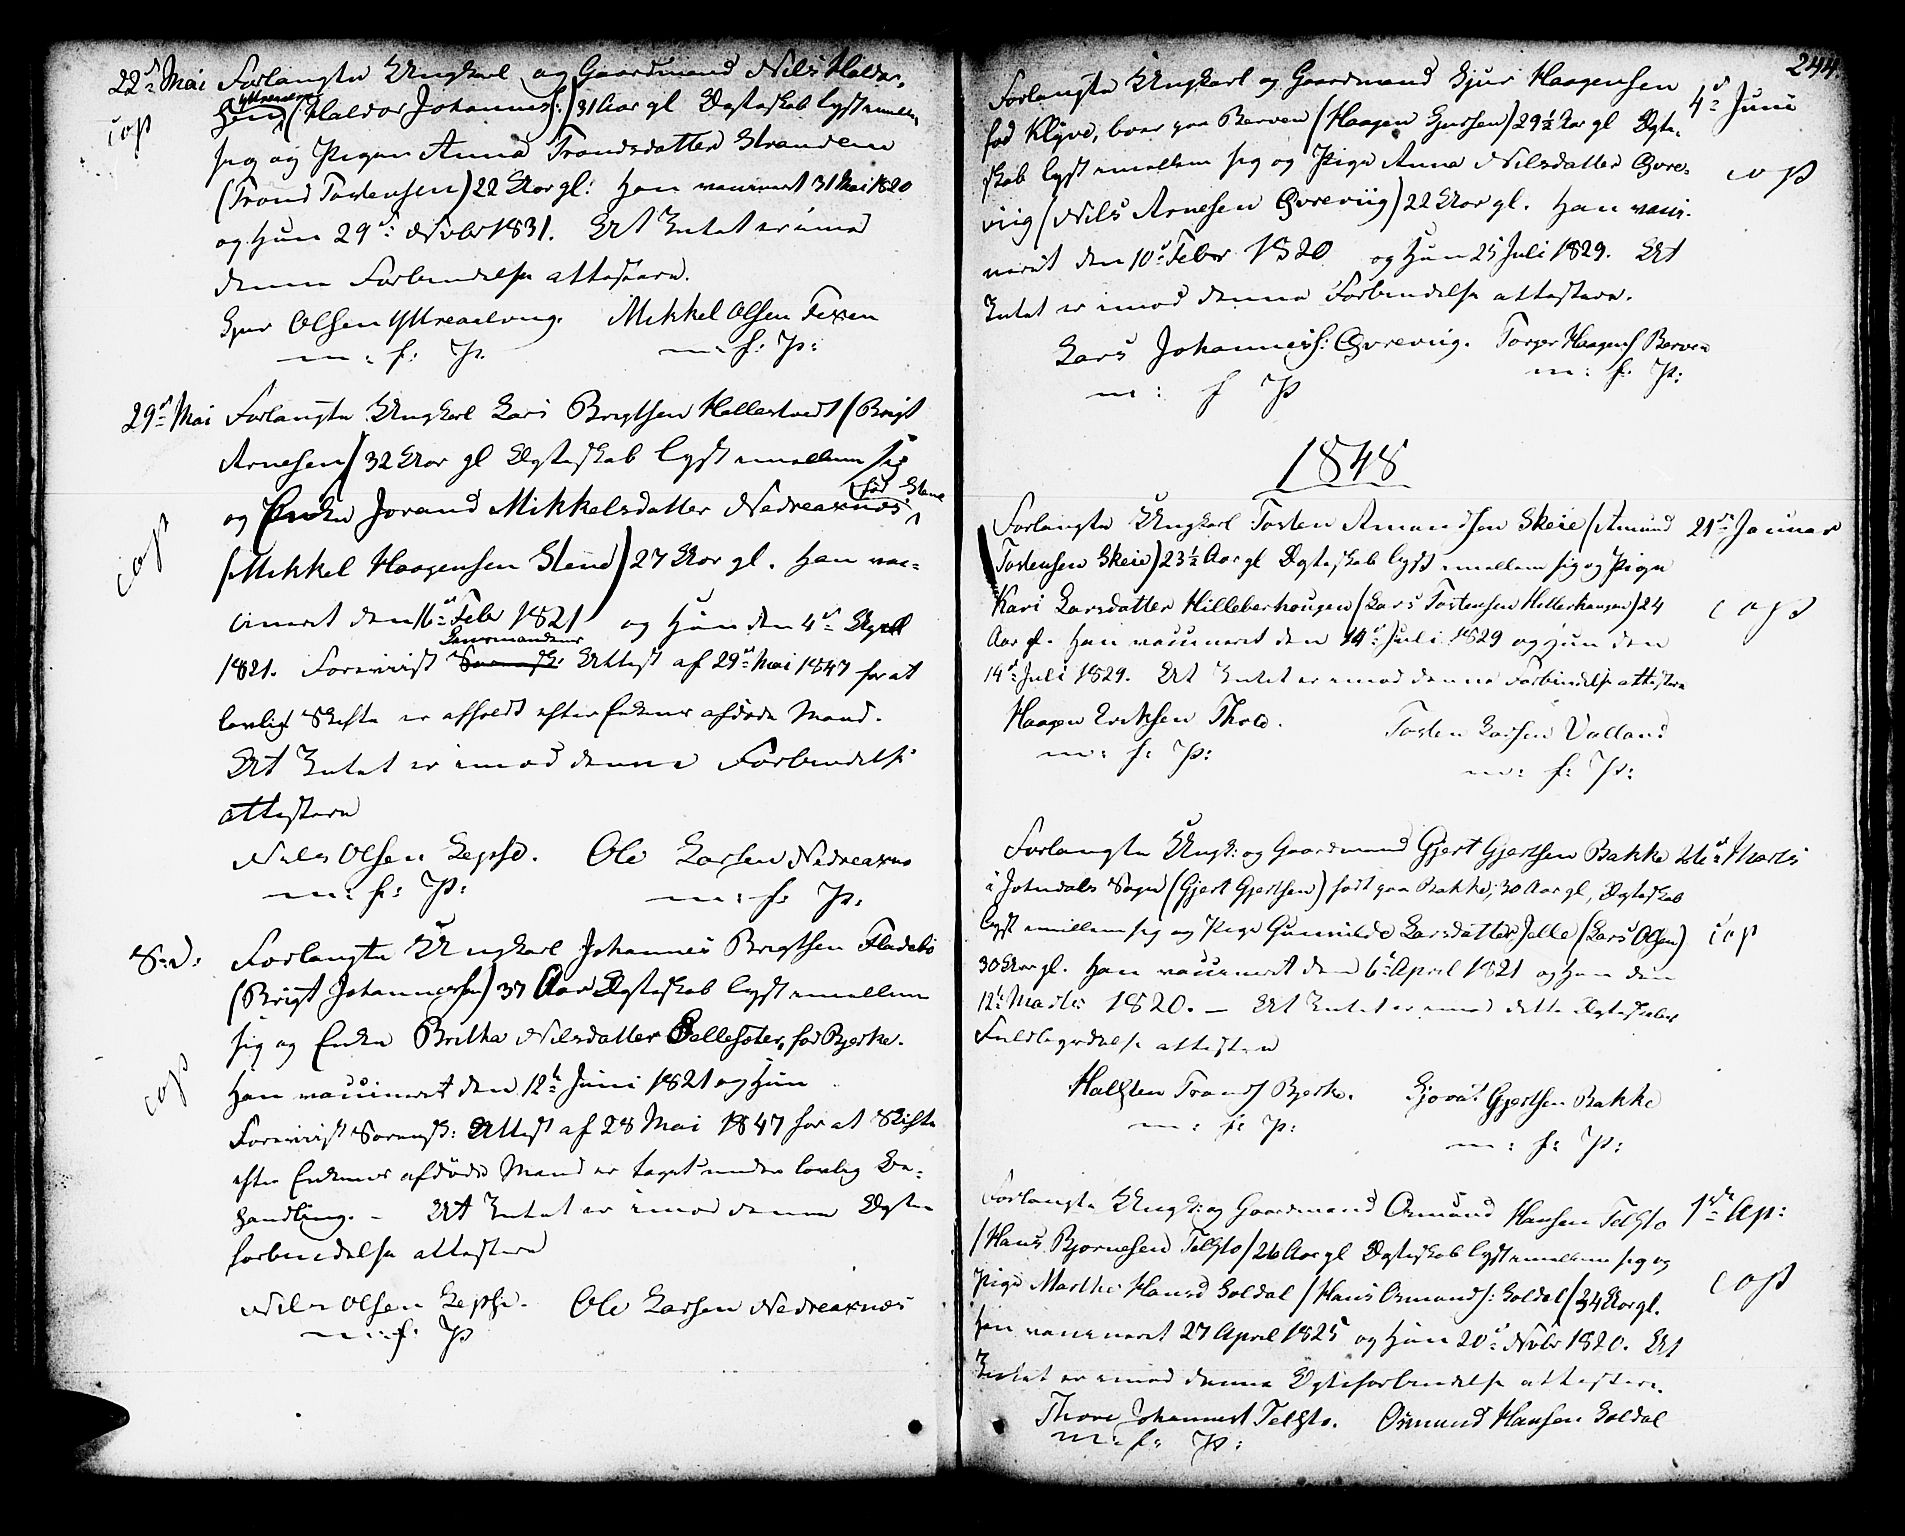 22d Mai Forlangte Ungkarl og Gaardmand Nils Haldor-
sen Yttreaalvug (Haldor Johanness:) 31 Aar gl Egteskab lyst imellem
cop
sig og Pigen Anna Trondsdatter Strandem
(Trond Tostensen) 22 Aar gl: Han vaccineret 31 Mai 1820
og Hun 29d: Novbr 1831. At Intet er imod
denne Forbindelse attestere.
Gjur Olsen Yttreaalvug. Mikkel Olsen Texen
m: f: P. m. f: P:
29d Mai Forlangte Ungkarl Lars Brigtsen Hallestvedt (Brigt
Arnesen) 32 Aar gl Egteskab lyst imellem sig
og Enken Jorand Mikkelsdatter Nedreaxnes (fød Stene
cop
(Mikkel Haagensen Stene) 27 Aar gl. Han vac-
cineret den 16d Febr 1821 og Hun den 4d April
1821. Foreviist Sorensk: Lensmandens Attest af 29d Mai 1847 for at
lovligt Skifte er afholdt efter Enkens afdøde Mand.
At Intet er imod denne Forbindelse
attestere
Nils Olsen Lepsø. Ole Larsen Nedreaxnes
m: f: P: m: f: P:
S: D: Forlangte Ungkarl Johannes Brigtsen Fladebø
(Brigt Johannessen) 37 Aar Egteskab lyst imellem
sig og Enke Britha Nilsdatter Belleseter, fød Bjerke.
cop
Han vaccineret den 12te Juni 1821 og Hun
Foreviist Sorensk: Attest af 28 Mai 1847 for at Skifte
efter Enkens afdøde Mand er taget under lovlig Be-
handling. - At Intet er imod denne Egte
forbindelse attestere
Nils Olsen Lepsø. Ole Larsen Nedreaxnes
m: f: P
244.
Forlangte Ungkarl og Gaardmand Gjur Haagensen 4d Juni
fød Klyve, boer paa Berven (Haagen Gjursen) 29½ Aar gl Egte-
skab lyst imellem sig og Pige Anna Nilsdatter Qvre- cop
viig (Nils Arnesen Qvreviig) 22 Aar gl. Han vacci-
neret den 10d Febr 1820 og Hun 25 Juli 1829. At
Intet er imod denne Forbindelse attestere.
Lars Johanness: Qvreviig. Torger Haagens Berven
m: f P m: f: P:
1848
Forlangte Ungkarl Tosten Amundsen Skeie (Amund 21de Januar
Tostensen Skeie) 23½ Aar gl Egteskab lyst imellem sig og Pigen
Kari Larsdatter Hilleberhougen (Lars Tostensen Hillerhaugen) 24 cop
Aar gl. Han vaccineret den 14d Juli 1829 og Hun den
14d Juli 1829. At Intet er imod denne Forbindelse attestere
Haagen Eriksen Thoe. Tosten Larsen Valland
m: f: P: m: f: P:
Forlangte Ungk: og Gaardmand Gjert Gjertsen Bakke 26d Marts
i Jondals Sogn (Gjert Gjertsen) født paa Bakke, 30 Aar gl, Egteskab
lyst imellem sig og Pige Gunnilde Larsdatter Jelle (Lars Olsen) cop
30 Aar gl. Han vaccineret den 6d April 1821 og Hun den
12te Marts 1820. - At Intet er imod dette Egteskabs
Fuldbyrdelse attestere
Halsten Tronds Bjerke. Sjovat Gjertsen Bakke
m: f: P: m: f: P:
Forlangte Ungk: og Gaardmand Osmund Hansen Telsto 1ste Ap:
(Hans Bjørnesen Telsto) 26 Aar gl Egteskab lyst imellem sig og
Pige Marthe Hansd Soldal (Hans Osmunds: Soldal) 34 Aar gl. cop
Han vaccineret 27 April 1825 og Hun 20d Novbr 1820. At
Intet er imod denne Egteforbindelse attestere.
Thore Johanness Telsto. Osmund Hansen Soldal
m: f: P: